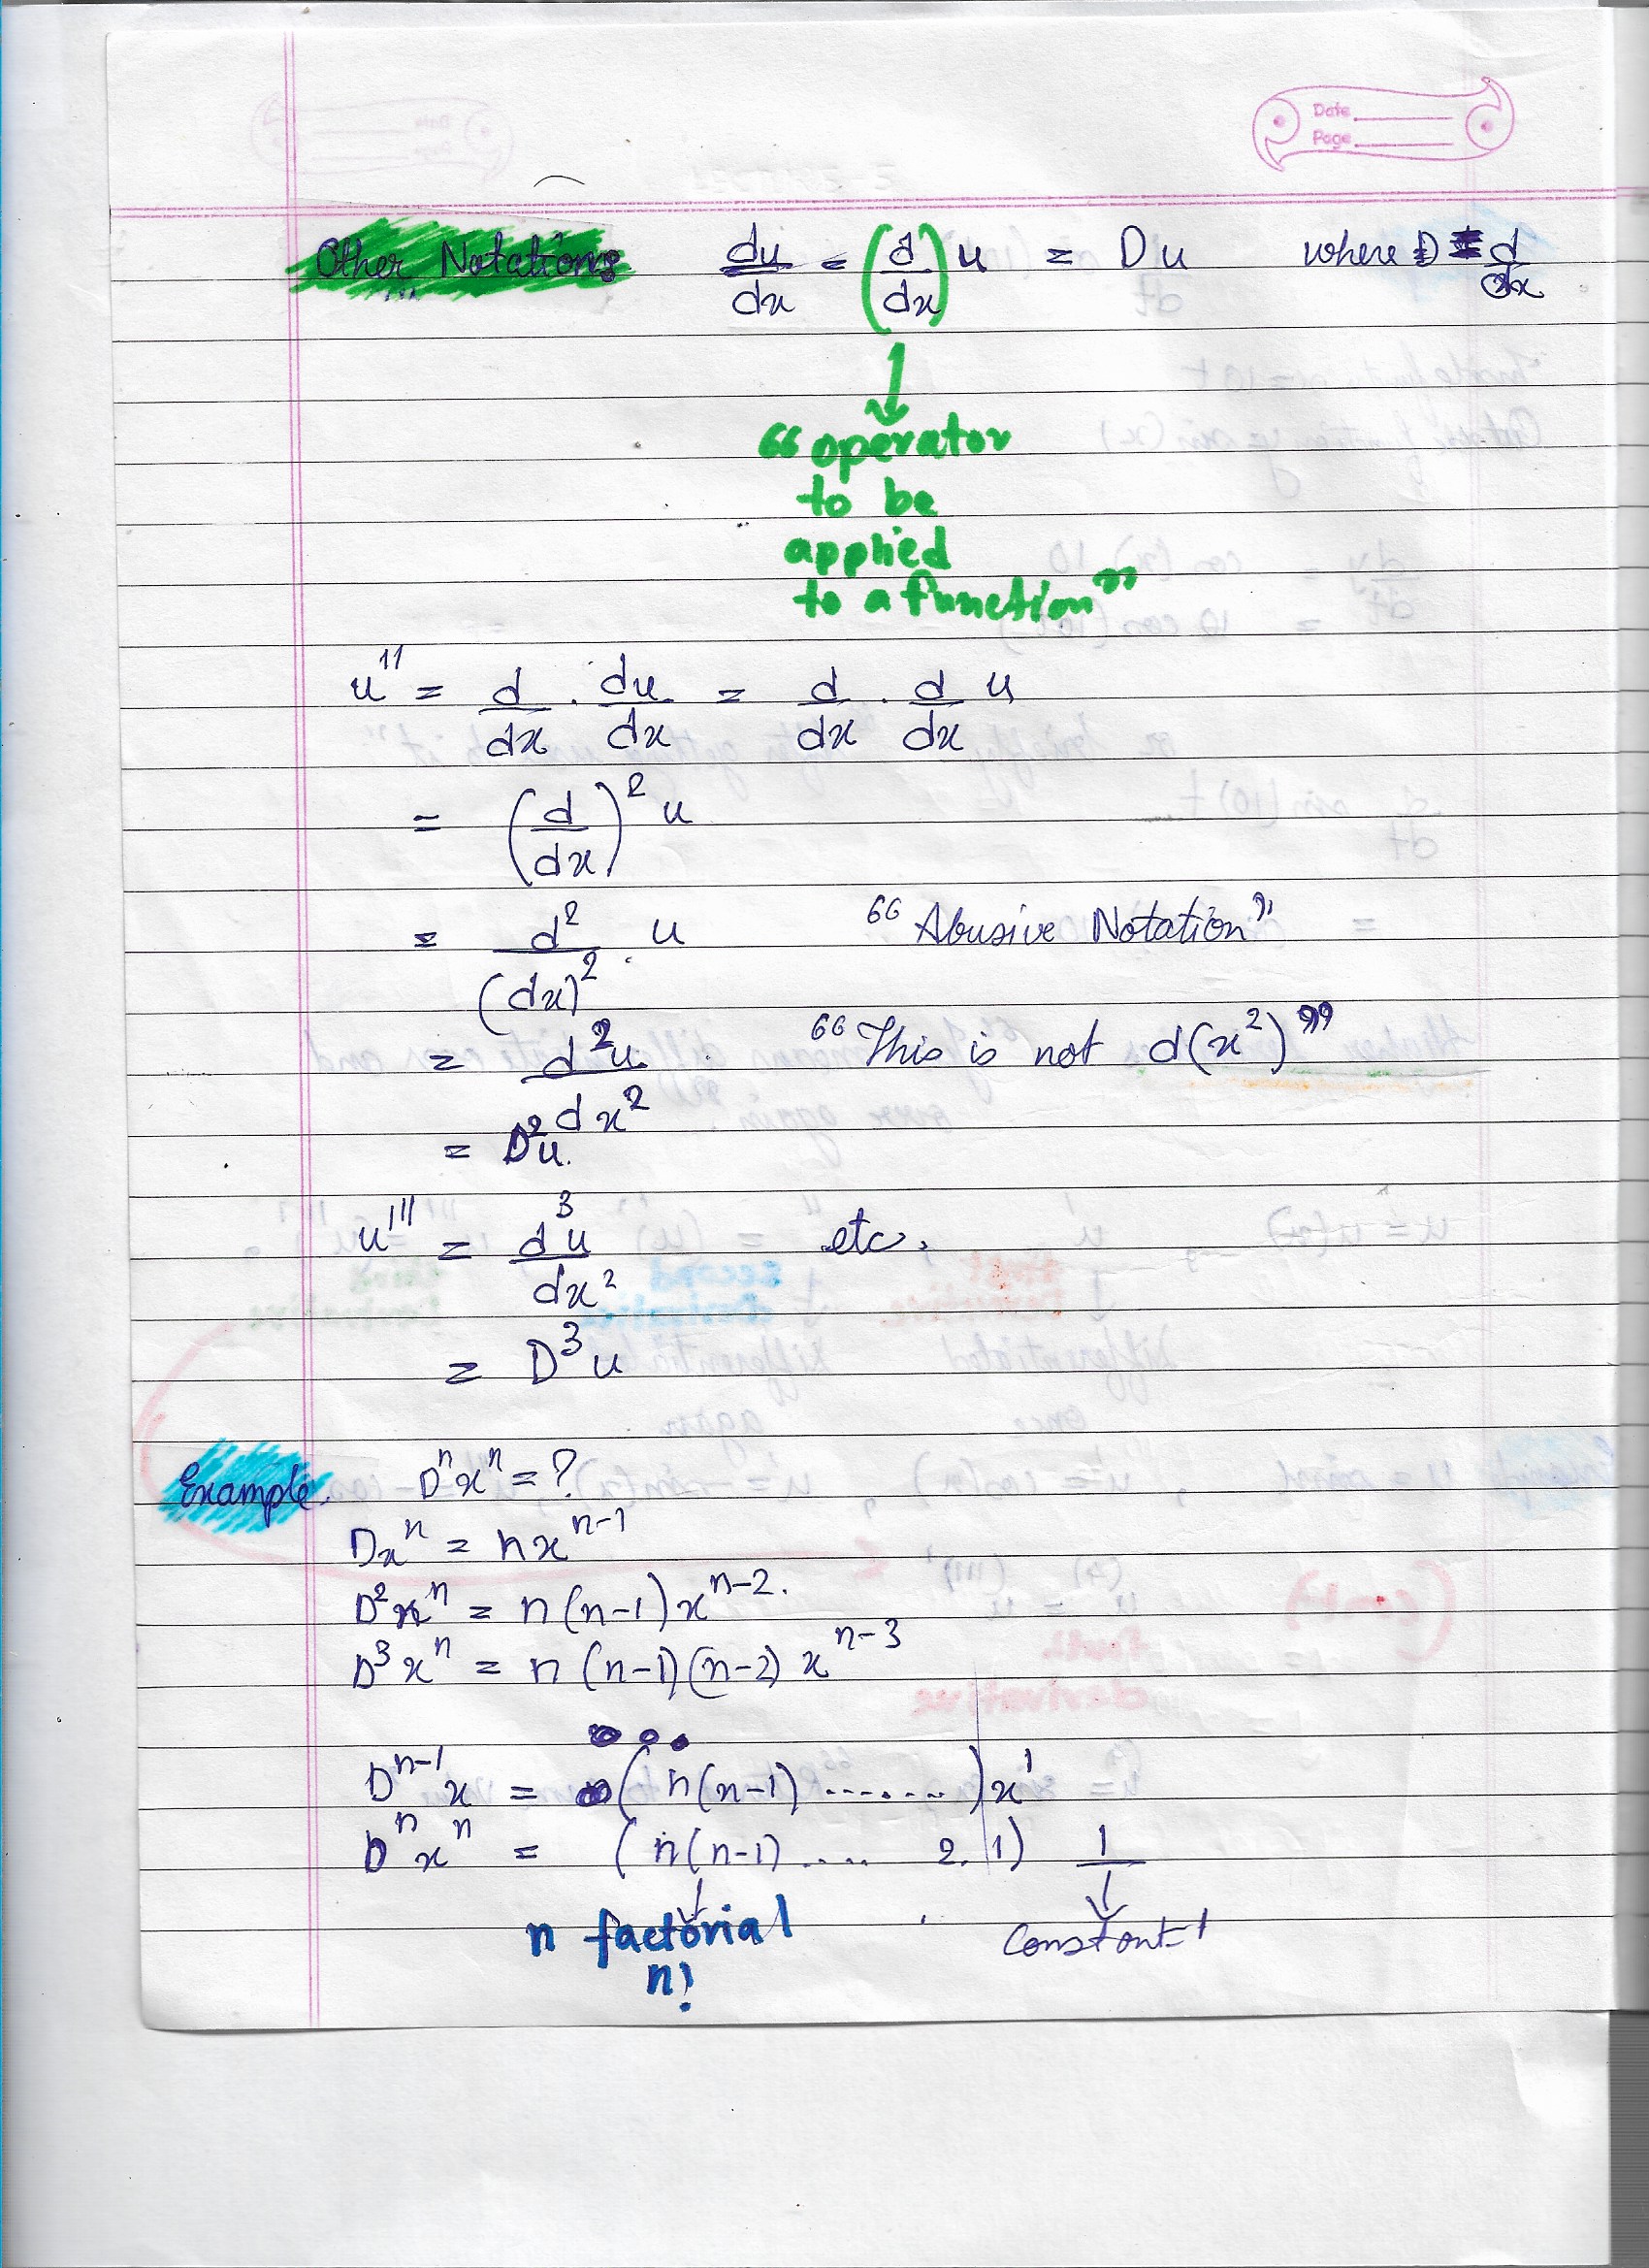 Date
Page
Other Notations du/dx = (d/dx) u = Du where D = d/dx
↓
“operator
to be
applied
to a function”
u'' = d/dx · du/dx = d/dx · d/dx u
= (d/dx)² u
= d²/(dx)² u “Abusive Notation”
= d²u/dx² “This is not d(x²)”
= D²u.
u''' = d³u/dx² etc.
= D³u
Example. Dⁿxⁿ = ?
Dxⁿ = nxⁿ⁻¹
D²xⁿ = n(n-1)xⁿ⁻².
D³xⁿ = n(n-1)(n-2)xⁿ⁻³
...
Dⁿ⁻¹x = (n(n-1).......)x¹
Dⁿxⁿ = (n(n-1).... 2.1) 1
↓ ↓
n factorial Constant-1
n!